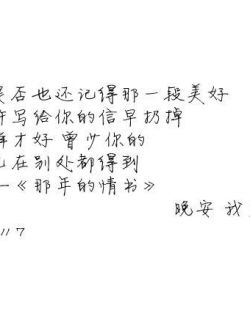 是否也还记得那一段美好
许写给你的信早扔掉
样才好 曾少你的
已在别处都得到
—《那年的情书》
晚安 我
117